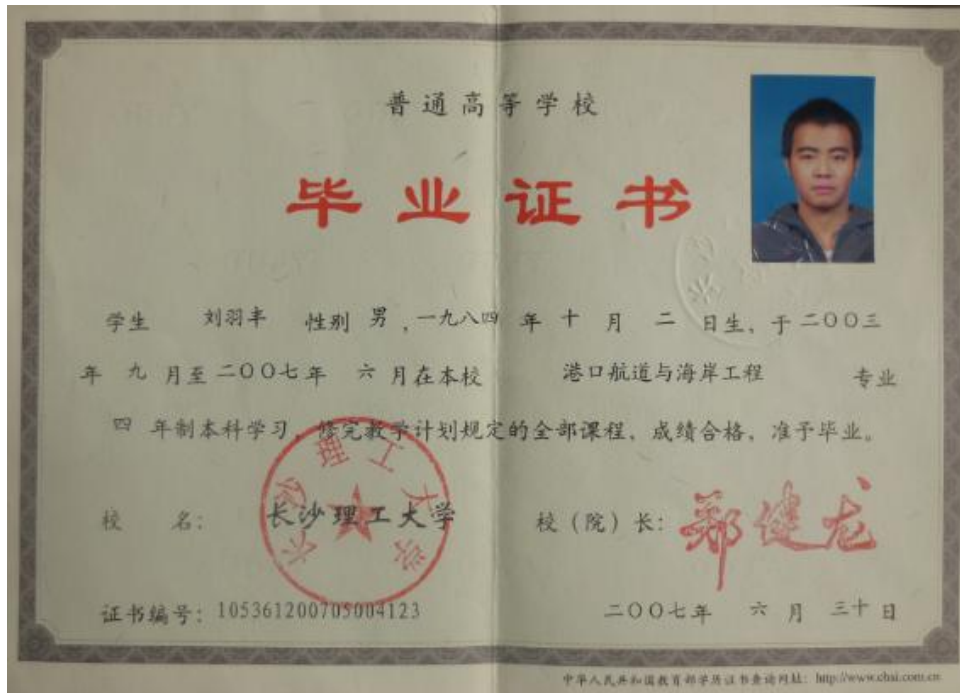 普通高等学校
毕业证书
学生 刘羽丰 性别 男，一九八四 年 十 月 二 日生，于二〇〇三
年 九 月至二〇〇七年 六 月在本校 港口航道与海岸工程 专业
四 年制本科学习，修完教学计划规定的全部课程，成绩合格，准予毕业。
长沙理工大学
校 名：长沙理工大学 校（院）长：郑健龙
证书编号：105361200705004123 二〇〇七年 六 月 三十 日
中华人民共和国教育部学历证书查询网址：http://www.chsi.com.cn